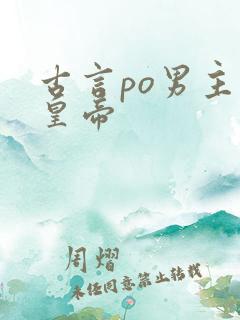 古言po男主
皇帝
周熠
未经同意禁止转载